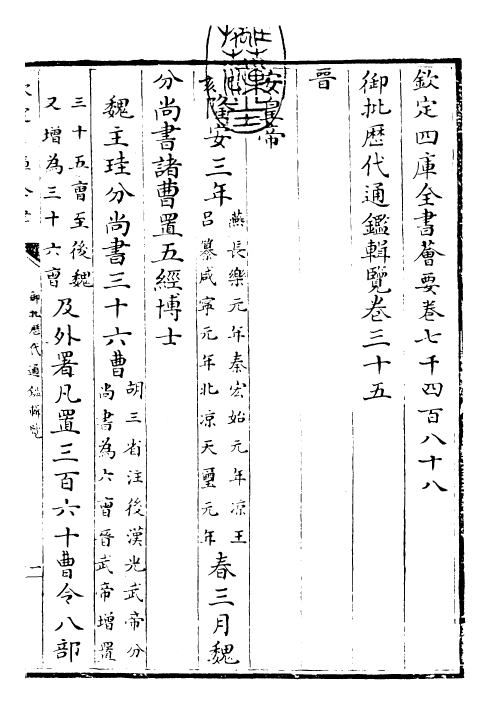 欽定四庫全書薈要卷七千四百八十八
御批歷代通鑑輯覽卷三十五
晉
安皇帝
隆安三年
燕長樂元年秦宏始元年涼王
呂纂咸寧元年北涼天璽元年
春三月魏
分尚書諸曹置五經博士
魏主珪分尚書三十六曹
胡三省注後漢光武帝分
尚書為六曹晉武帝增置
三十五曹至後魏
又增為三十六曹
及外署凡置三百六十曹令八部
御批歷代通鑑輯覽